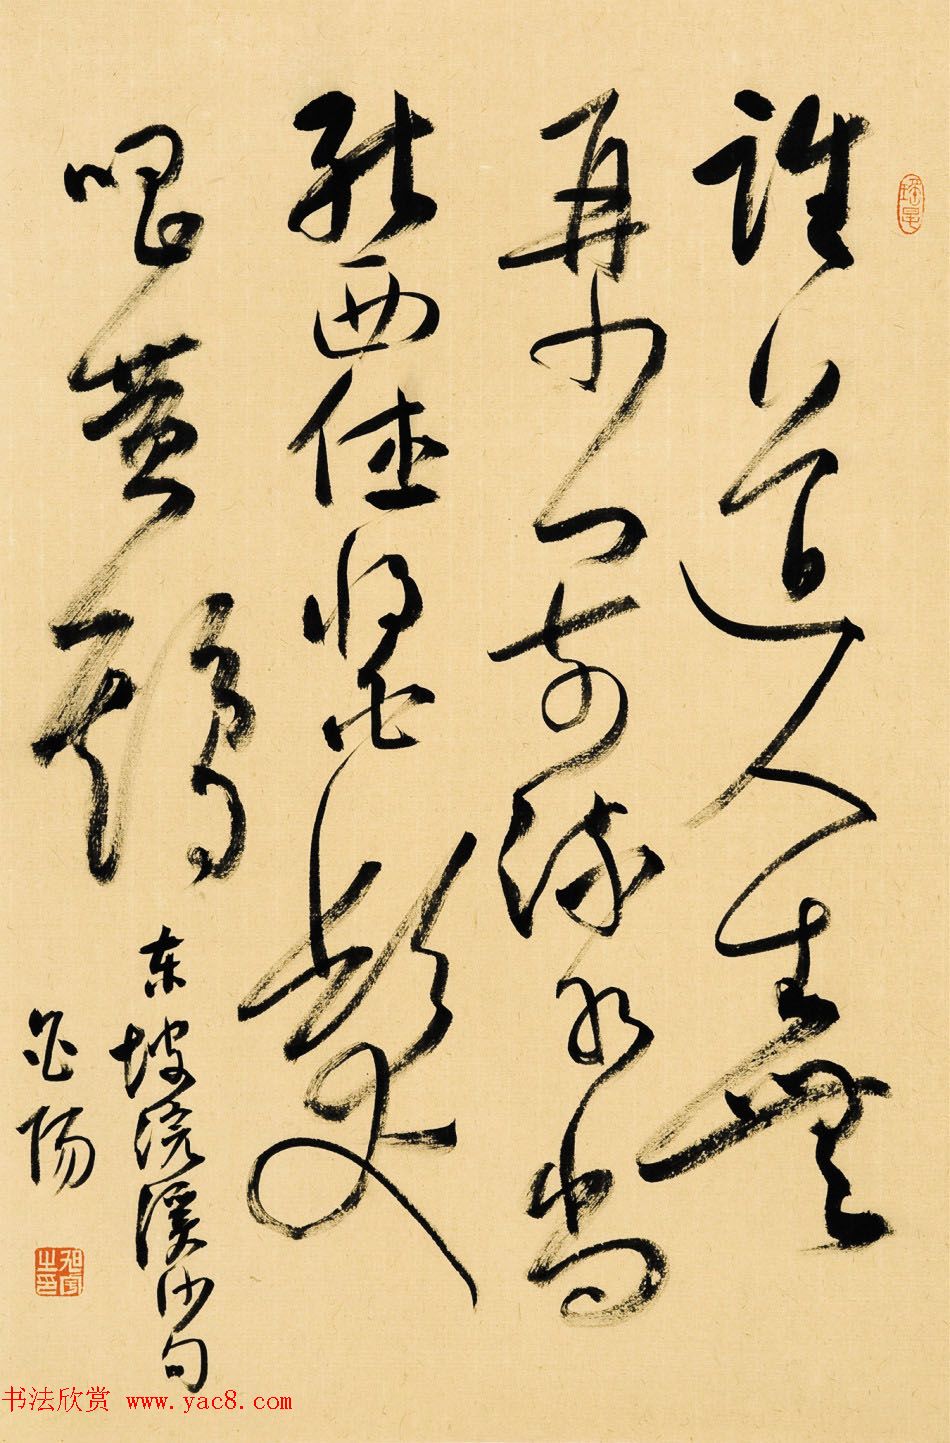 誰道人生無
再少门前流水尚
能西休将白髮
唱黄鷄
东坡浣溪沙句
书法欣赏 www.yac8.com